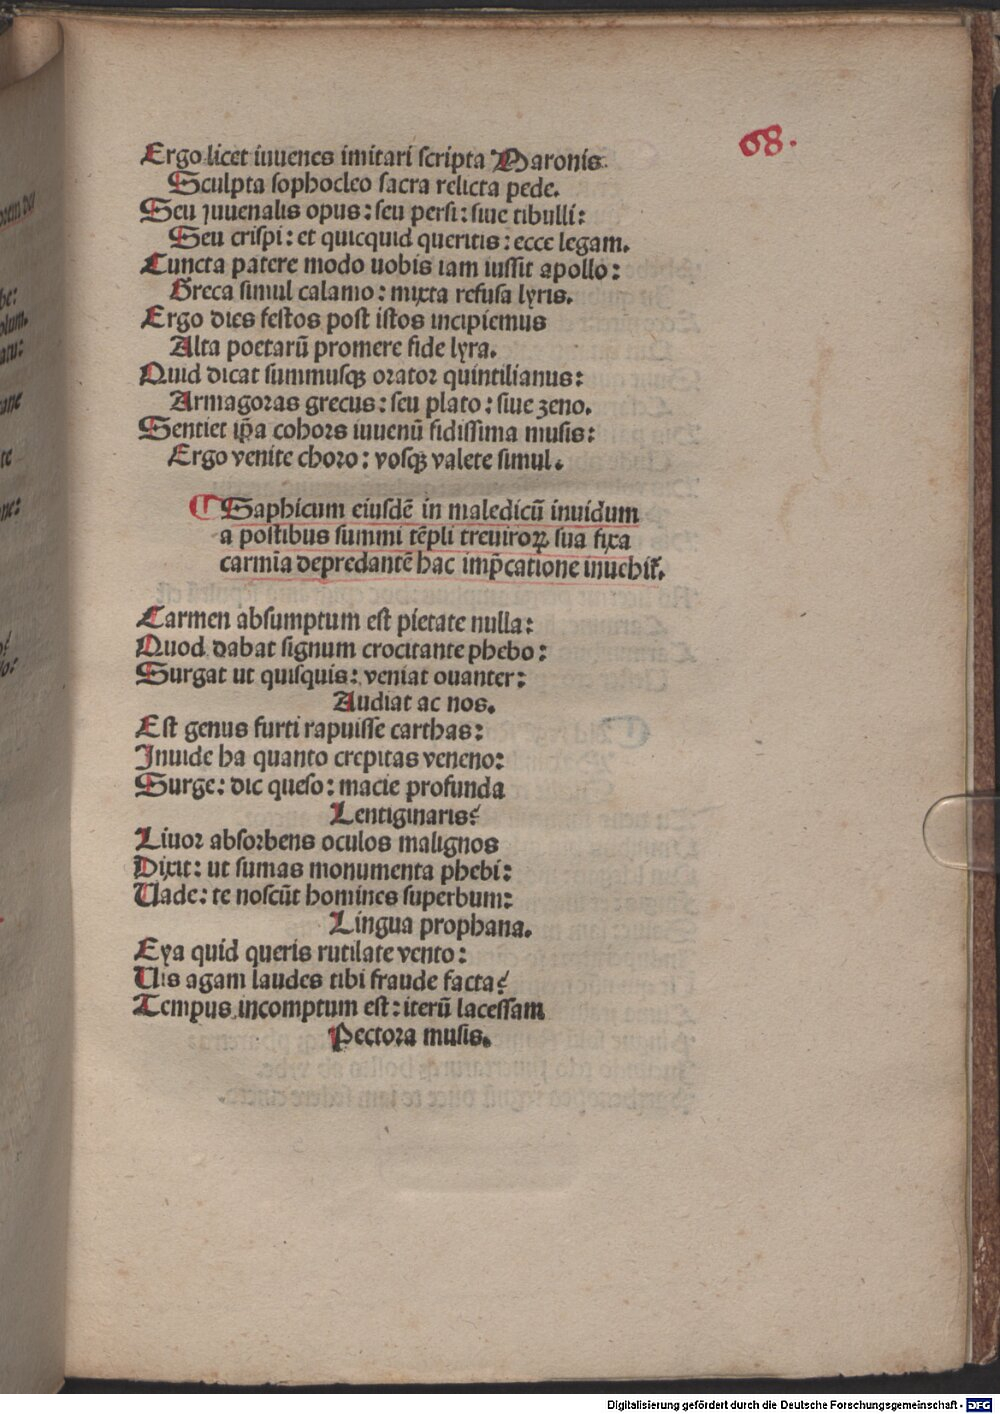 68.
Ergo licet iuuenes imitari scripta Maronis.
Sculpta sophocleo sacra relicta pede.
Seu iuuenalis opus: seu persi: siue tibulli:
Seu crispi: et quicquid queritis: ecce legam.
Cuncta patere modo uobis iam iussit apollo:
Greca simul calamo: mixta refusa lyris.
Ergo dies festos post istos incipiemus
Alta poetarū promere fide lyra.
Quid dicat summusqꝫ orator quintilianus:
Armagoras grecus: seu plato: siue zeno.
Sentiet ip̄a cohors iuuenū fidissima musis:
Ergo venite choro: vosqꝫ valete simul.
¶ Saphicum eiusdē in maledicū inuidum
a postibus summi tēpli treuiroꝝ sua fixa
carmīa depredantē hac imp̄catione inuehit̄.
Carmen absumptum est pietate nulla:
Quod dabat signum crocitante phebo:
Surgat ut quisquis: veniat ouanter:
Audiat ac nos.
Est genus furti rapuisse carthas:
Inuide ha quanto crepitas veneno:
Surge: dic queso: macie profunda
Lentiginaris?
Liuor absorbens oculos malignos
Dixit: ut sumas monumenta phebi:
Uade: te noscūt homines superbum:
Lingua prophana.
Eya quid queris rutilate vento:
Uis agam laudes tibi fraude facta?
Tempus incomptum est: iterū lacessam
Pectora musis.
Digitalisierung gefördert durch die Deutsche Forschungsgemeinschaft - DFG